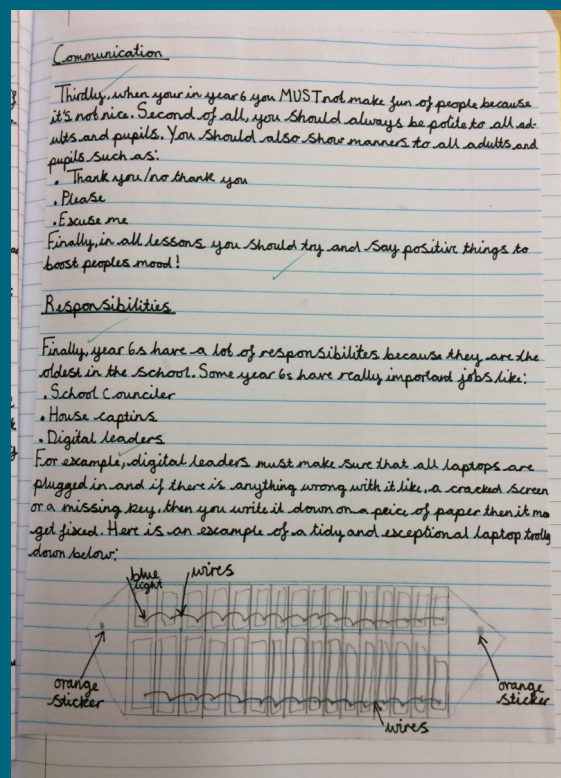 Communication
Thirdly, when your in year 6 you MUST not make fun of people because
it's not nice. Second of all, you should always be polite to all ad-
ults and pupils. You should also show manners to all adults and
pupils such as:
• Thank you/no thank you
• Please
• Excuse me
Finally, in all lessons you should try and say positive things to
boost peoples mood!
Responsibilities
Finally, year 6s have a lot of responsibilites because they are the
oldest in the school. Some year 6s have really important jobs like:
• School Counciler
• House captins
• Digital leaders
For example, digital leaders must make sure that all laptops are
plugged in and if there is anything wrong with it like, a cracked screen
or a missing key, then you write it down on a peice of paper then it
get fixed. Here is an example of a tidy and exceptional laptop trolly
down below:
blue
light
wires
orange
sticker
orange
sticker
wires